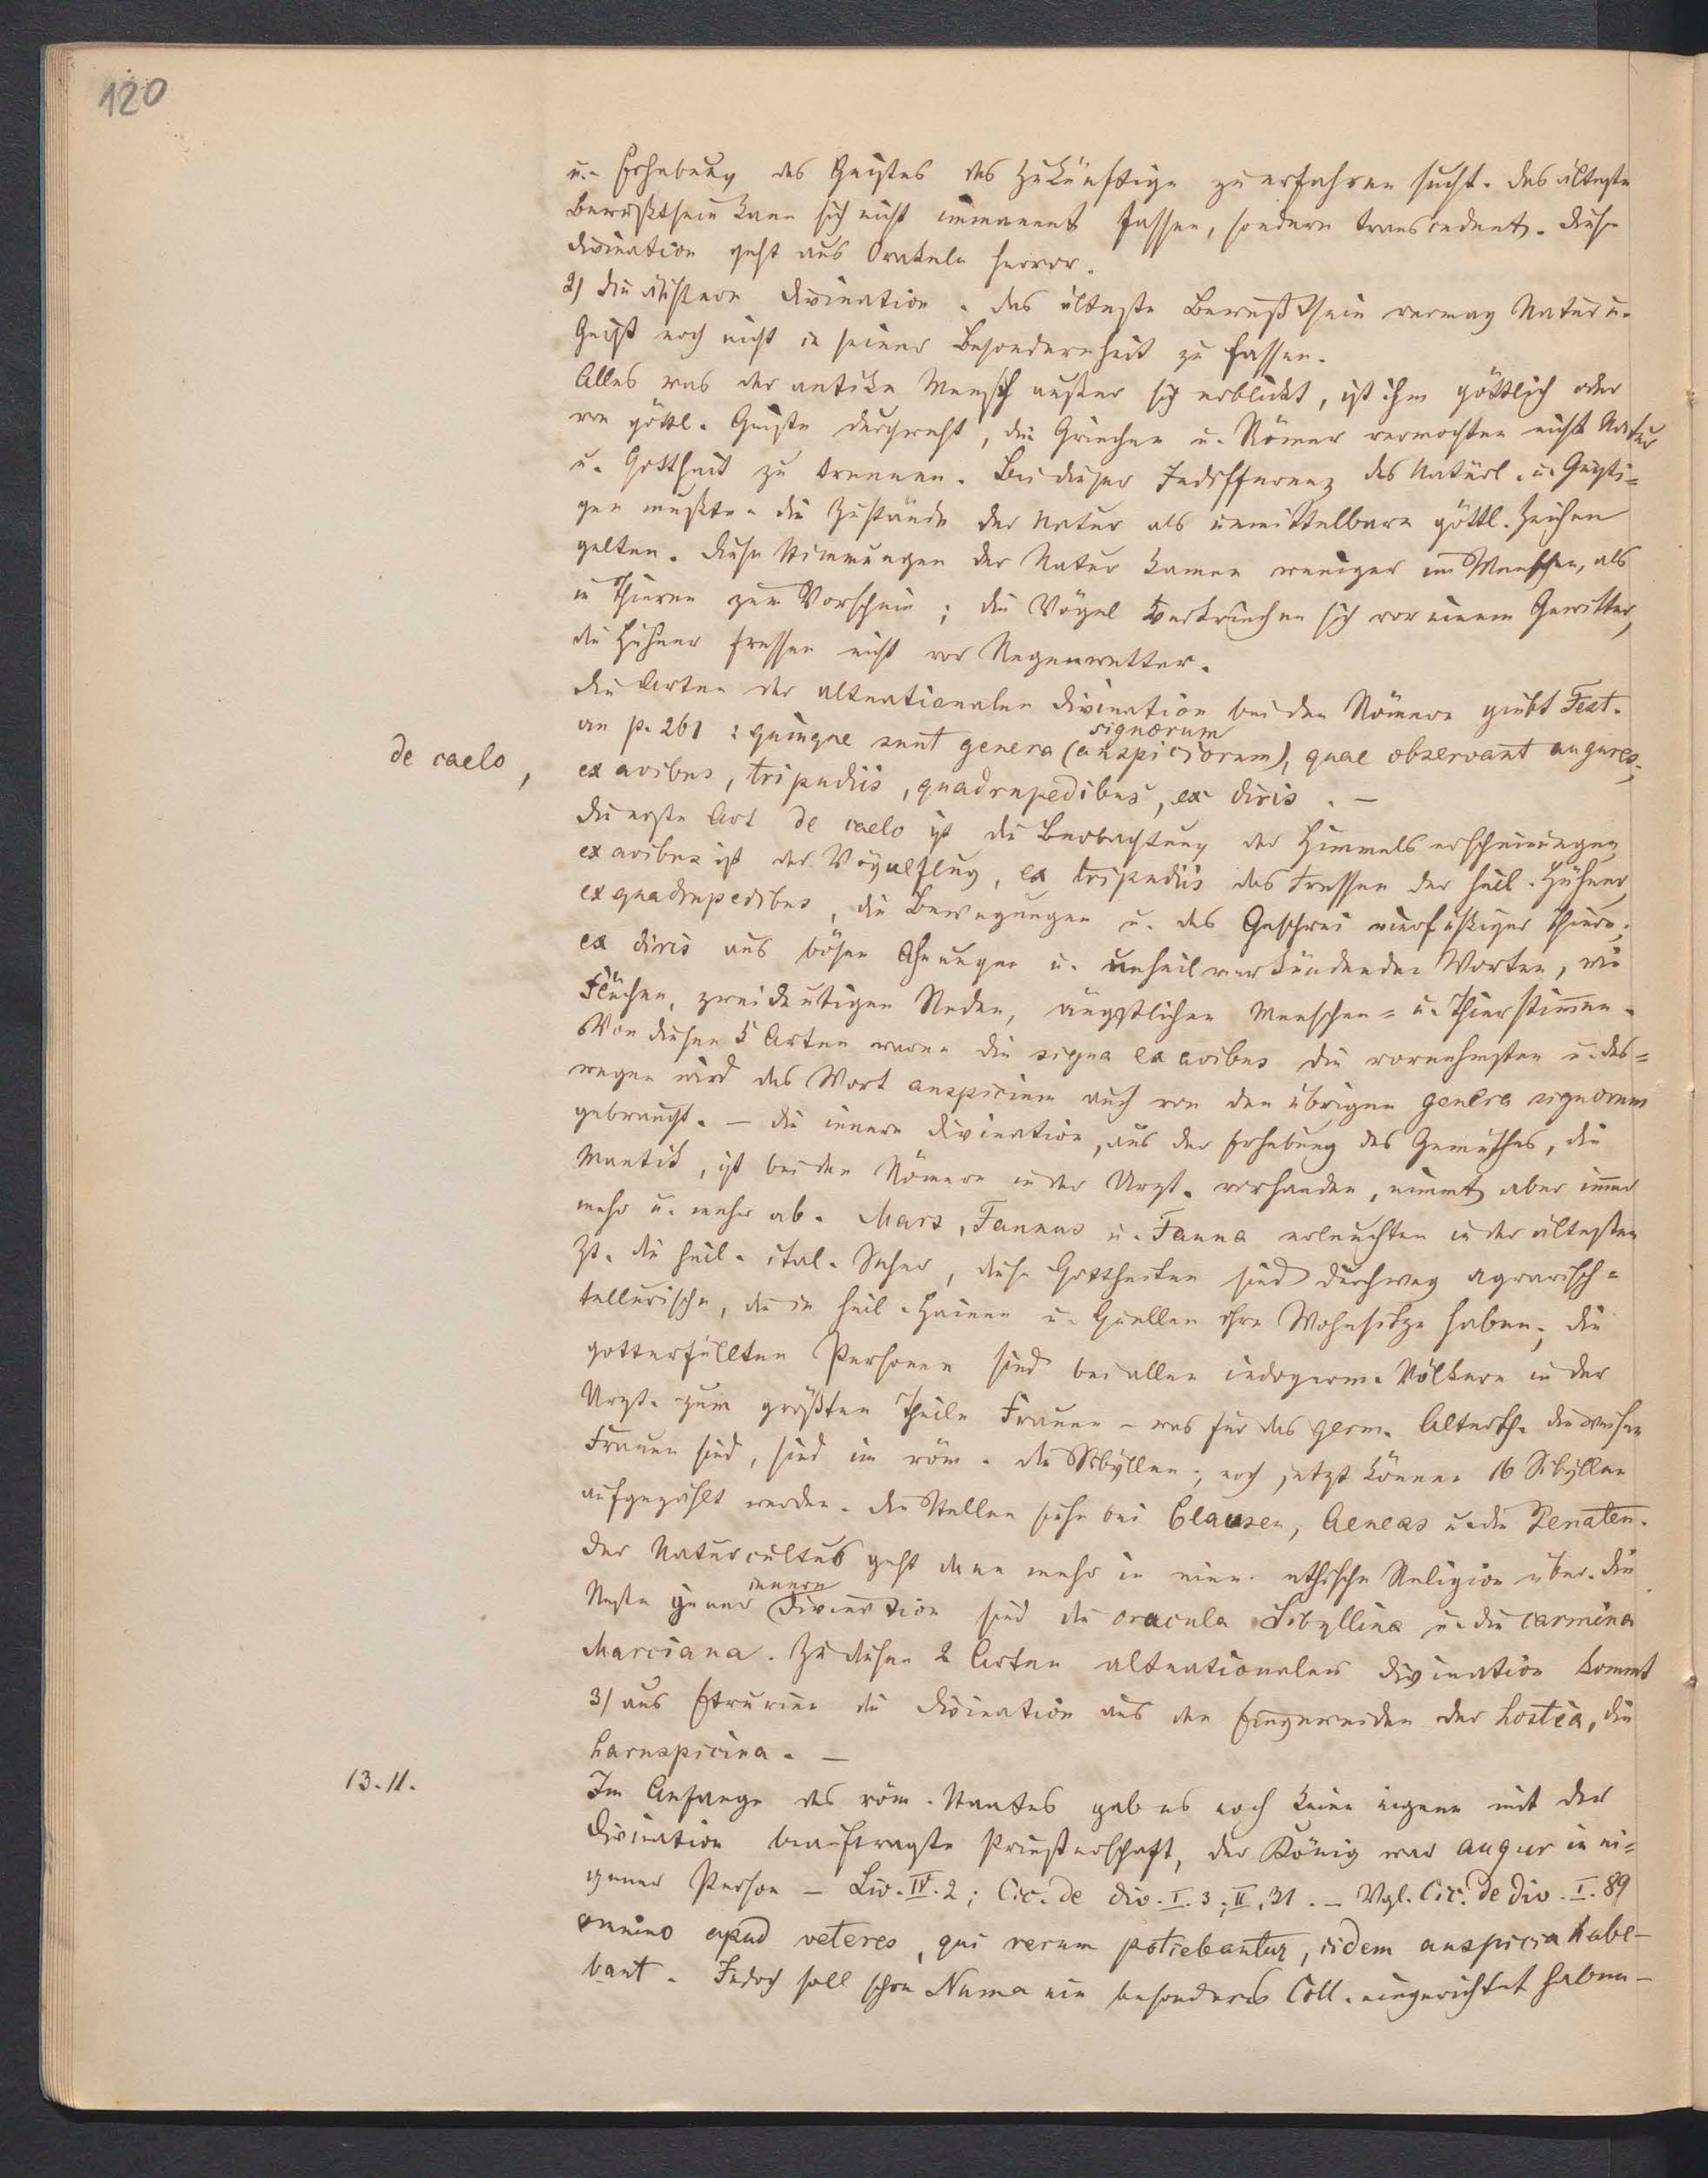 120
u. Erhebung des Geistes das Zukünftige zu erfahren sucht. das älteste
Bewußtsein kann sich nicht immanent fassen, sondern transcendent. Diese
Divination geht aus Orakeln hervor.
2) die äußere Divination. das älteste Bewußtsein vermag Natur u.
Geist noch nicht in seiner Besonderheit zu fassen.
Alles was der antike Mensch außer sich erblickt, ist ihm göttlich oder
von göttl. Geiste durchweht, die Griechen u. Römer vermochten nicht Natur
u. Gottheit zu trennen. Bei dieser Indifferenz des Natürl. u. Geisti=
gen mußten die Zustände der Natur als unmittelbare göttl. Zeichen
gelten. diese Stimmungen der Natur kamen weniger im Menschen, als
in Thieren zum Vorschein; die Vögel verkriechen sich vor einem Gewitter,
die Hühner fressen nicht vor Regenwetter.
die Arten der altnationalen Divination bei den Römern giebt Fest.
signorum
an p. 261: quinque sunt genera (auspiciorum), quae observant augures;
de caelo,
ex avibus, tripudiis, quadrupedibus, ex diris. —
die erste Art de caelo ist die Beobachtung der Himmelserscheinungen
ex avibus ist der Vögelflug, ex tripudiis das Fressen der heil. Hühner,
ex quadrupedibus, die Bewegungen u. das Geschrei vierfüßiger Thiere;
ex diris aus bösen Ahnungen u. unheilverkündenden Worten, wie
Flüchen, zweideutigen Reden, ängstlichen Menschen= u. Thierstimmen.
Von diesen 5 Arten waren die signa ex avibus die vornehmsten u. des=
wegen wird das Wort auspicium auch von den übrigen genera signorum
gebraucht. — die innere Divination, aus der Erhebung des Gemüthes, die
Mantik, ist bei den Römern in der Urzt. vorhanden, nimmt aber immer
mehr u. mehr ab. Mars, Faunus u. Fauna erleuchten in der ältesten
Zt. die heil. ital. Seher, diese Gottheiten sind durchweg agrarisch=
tellurische, die in heil. Hainen u. Quellen ihre Wohnsitze haben; die
gotterfüllten Personen sind bei allen indogerm. Völkern in der
Urzt. zum größten Theile Frauen – was für das germ. Alterth. die weisen
Frauen sind, sind im röm. die Sibyllen; noch jetzt können 16 Sibyllen
aufgezählt werden. die Stellen siehe bei Clausen, Aeneas u. die Penaten.
der Naturcultus geht dann mehr in eine ethische Religion über. die
innern
Reste jener Divination sind die oracula Sibyllina u. die carmina
Marciana. Zu diesen 2 Arten altnationaler Divination kommt
3) aus Etrurien die Divination aus den Eingeweiden der hostia, die
haruspicina. —
13. 11.
Im Anfange des röm. Staates gab es noch keine eigene mit der
Divination beauftragte Priesterschaft, der König war augur in ei=
gener Person – Liv. IV. 2; Cic. de div. I. 3; II, 31. – Vgl. Cic. de div. I. 89
omnino apud veteres, qui rerum potiebantur, iidem auspicia habe-
bant. Jedoch soll schon Numa ein besonderes Coll. eingerichtet haben –